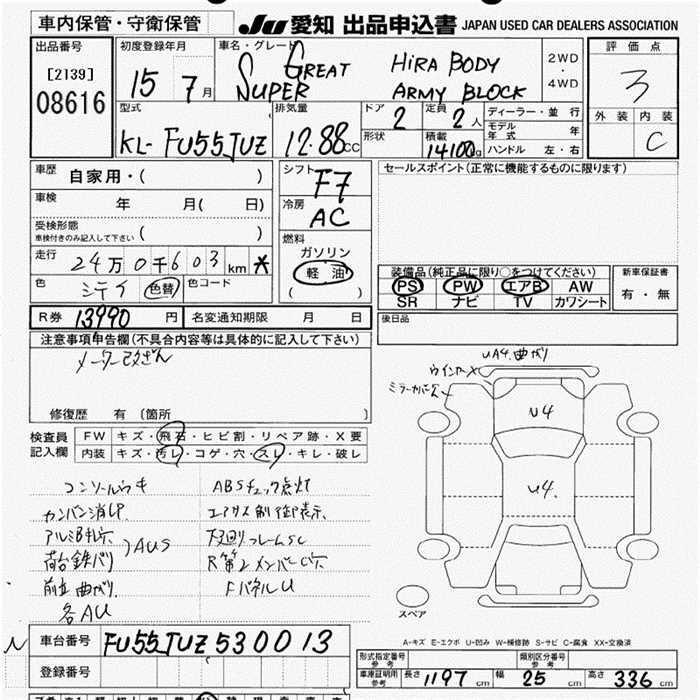 車内保管・守衛保管
JU 愛知 出品申込書 JAPAN USED CAR DEALERS ASSOCIATION
出品番号
[2139]
08616
初度登録年月
15 7月
車名・グレード
SUPER GREAT HIRA BODY
ARMY BLOCK
2WD
・
4WD
評価点
3
外装 内装
C
型式
KL-FU55JUZ
排気量
12.88cc
ドア
2
定員
2人
形状
積載
14100g
ディーラー・並行
モデル年式 年
ハンドル 左・右
車歴
自家用・( )
車検
年 月( 日)
受検形態
車検付きのみ記入して下さい ( )
走行
24万0千603km *
色
シテイ 色替
色コード
シフト
F7
冷房
AC
燃料
ガソリン
軽油
( )
セールスポイント(正常に機能するものに限ります)
装備品(純正品に限り○をつけてください)
PS PW エアB AW
SR ナビ TV カワシート
新車保証書
有・無
R券 13990円
名変通知期限 月 日
後日品
注意事項申告欄(不具合内容等は具体的に記入して下さい)
メーター改ざん
修復歴 有 〔箇所 〕
検査員
記入欄
FW キズ・飛石・ヒビ割・リペア跡・X要
内装 キズ・汚レ・コゲ・穴・スレ・キレ・破レ
コンソールウキ
カンバン消し戸
アルミ
荷台鉄バリ
AUS
前立曲がり
各AU
ABSチェック点灯
エアサス制御表示
フレームSC
R第2メンバーC穴
FパネルU
UA4.曲がり
ウインカーX
ミラーカバーX
U4
U4.
スペア
A-キズ E-エクボ U-凹み W-補修跡 S-サビ C-腐食 XX-交換済
車台番号
FU55JUZ530013
登録番号
形式指定番号
参考
類別区分番号
参考
車庫証明用
参考
長さ 1197cm
幅 25cm
高さ 336cm